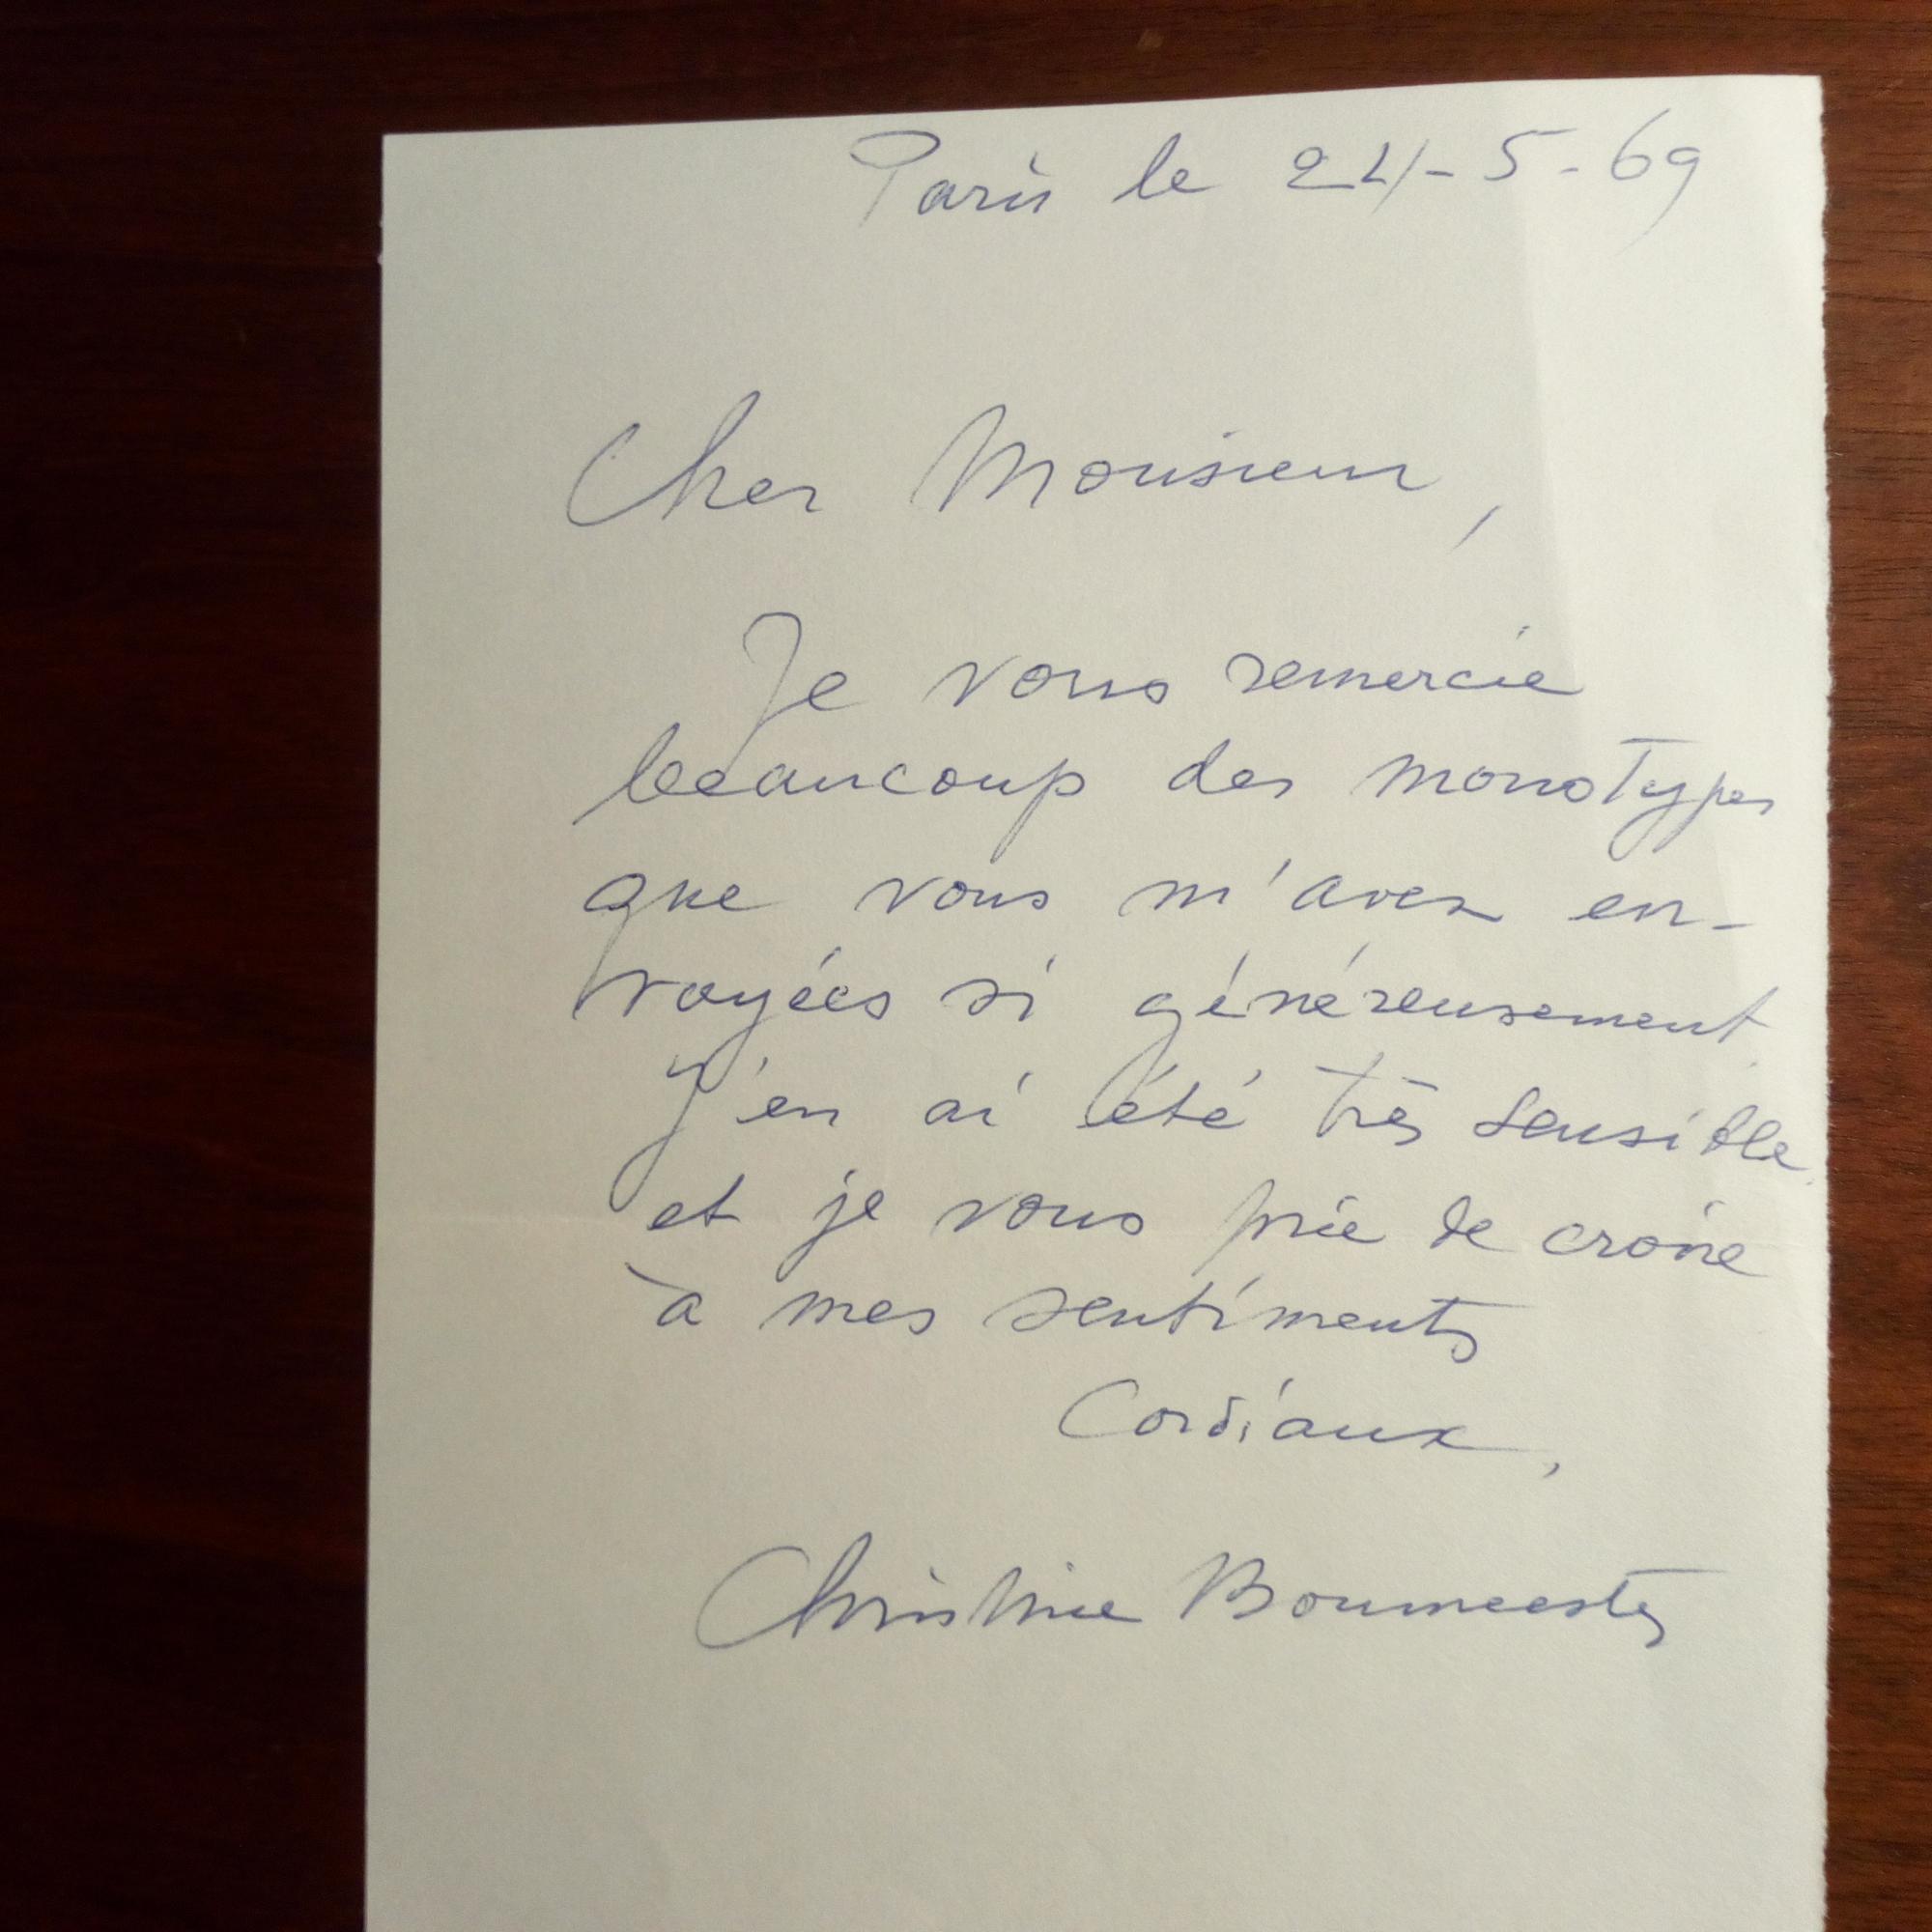 Paris le 24-5-69
Cher Monsieur,
Je vous remercie
beaucoup des monotypes
que vous m'avez en-
voyées si généreusement.
J'en ai été très sensible
et je vous prie de croire
à mes sentiments
Cordiaux,
Christine Boumeester